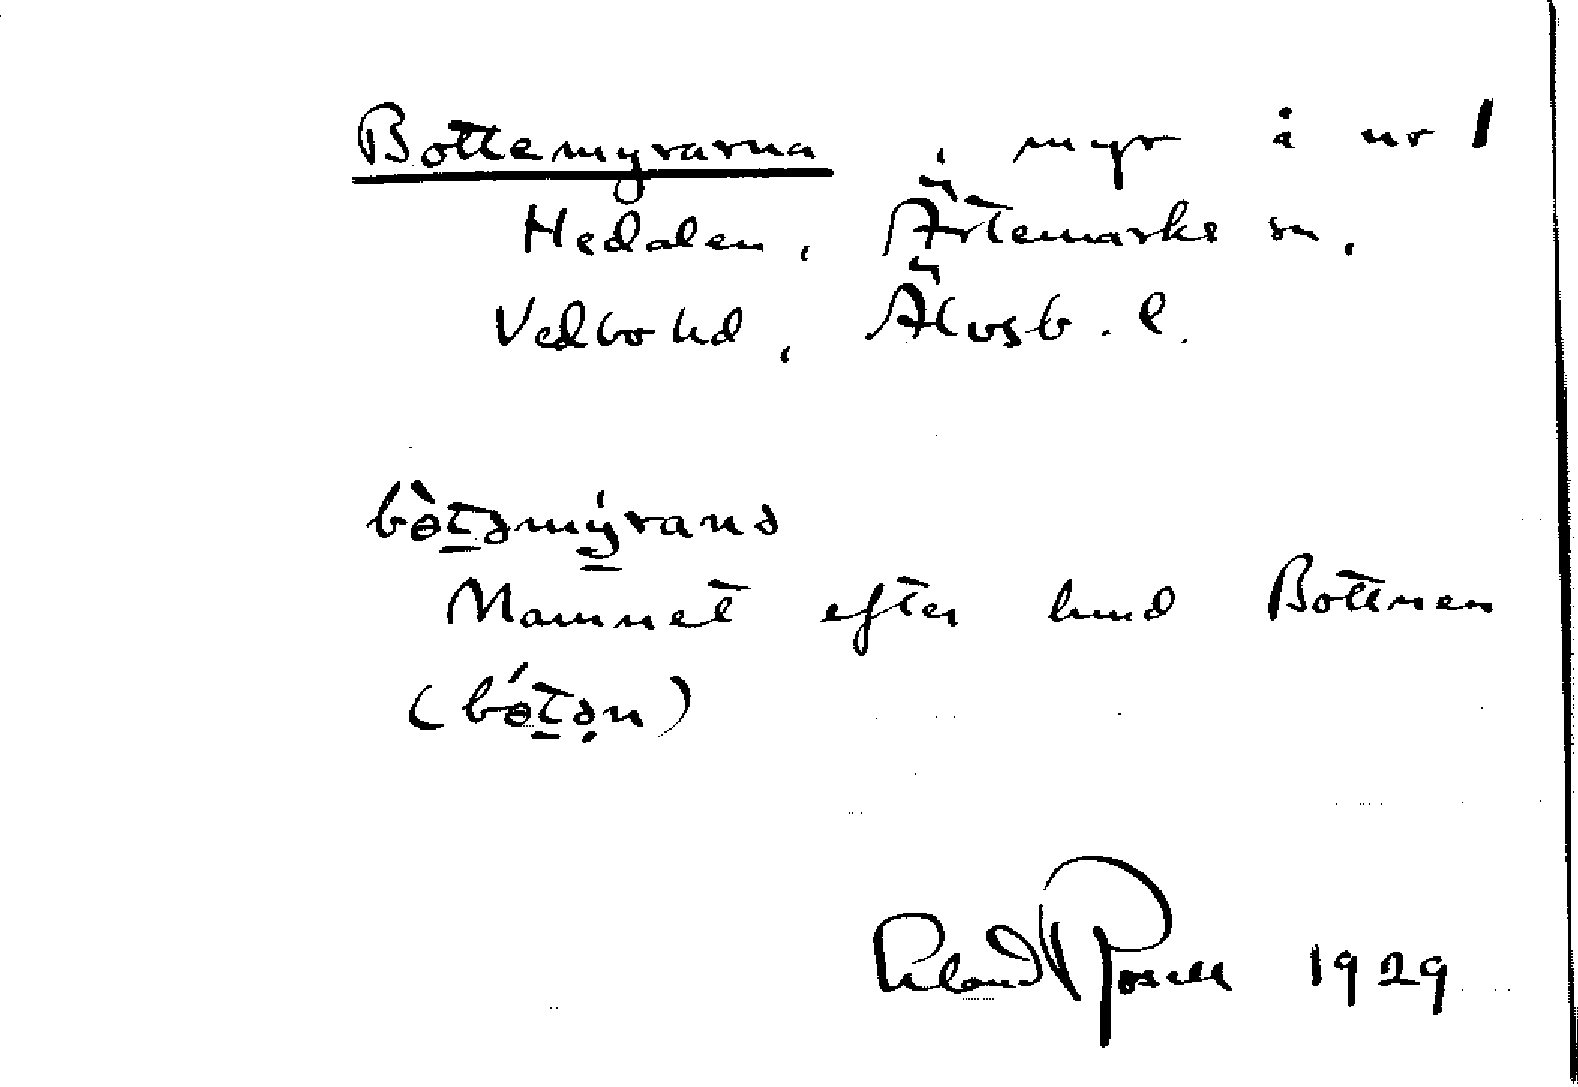 Bottemyrarna, myr å nr 1
Hedalen, Ärtemarks sn,
Vedbo hd, Älvsb. l.
bòt̠əmýranə
Namnet efter hmd Bottnen
(bót̠ən)
Erland Rosell 1929